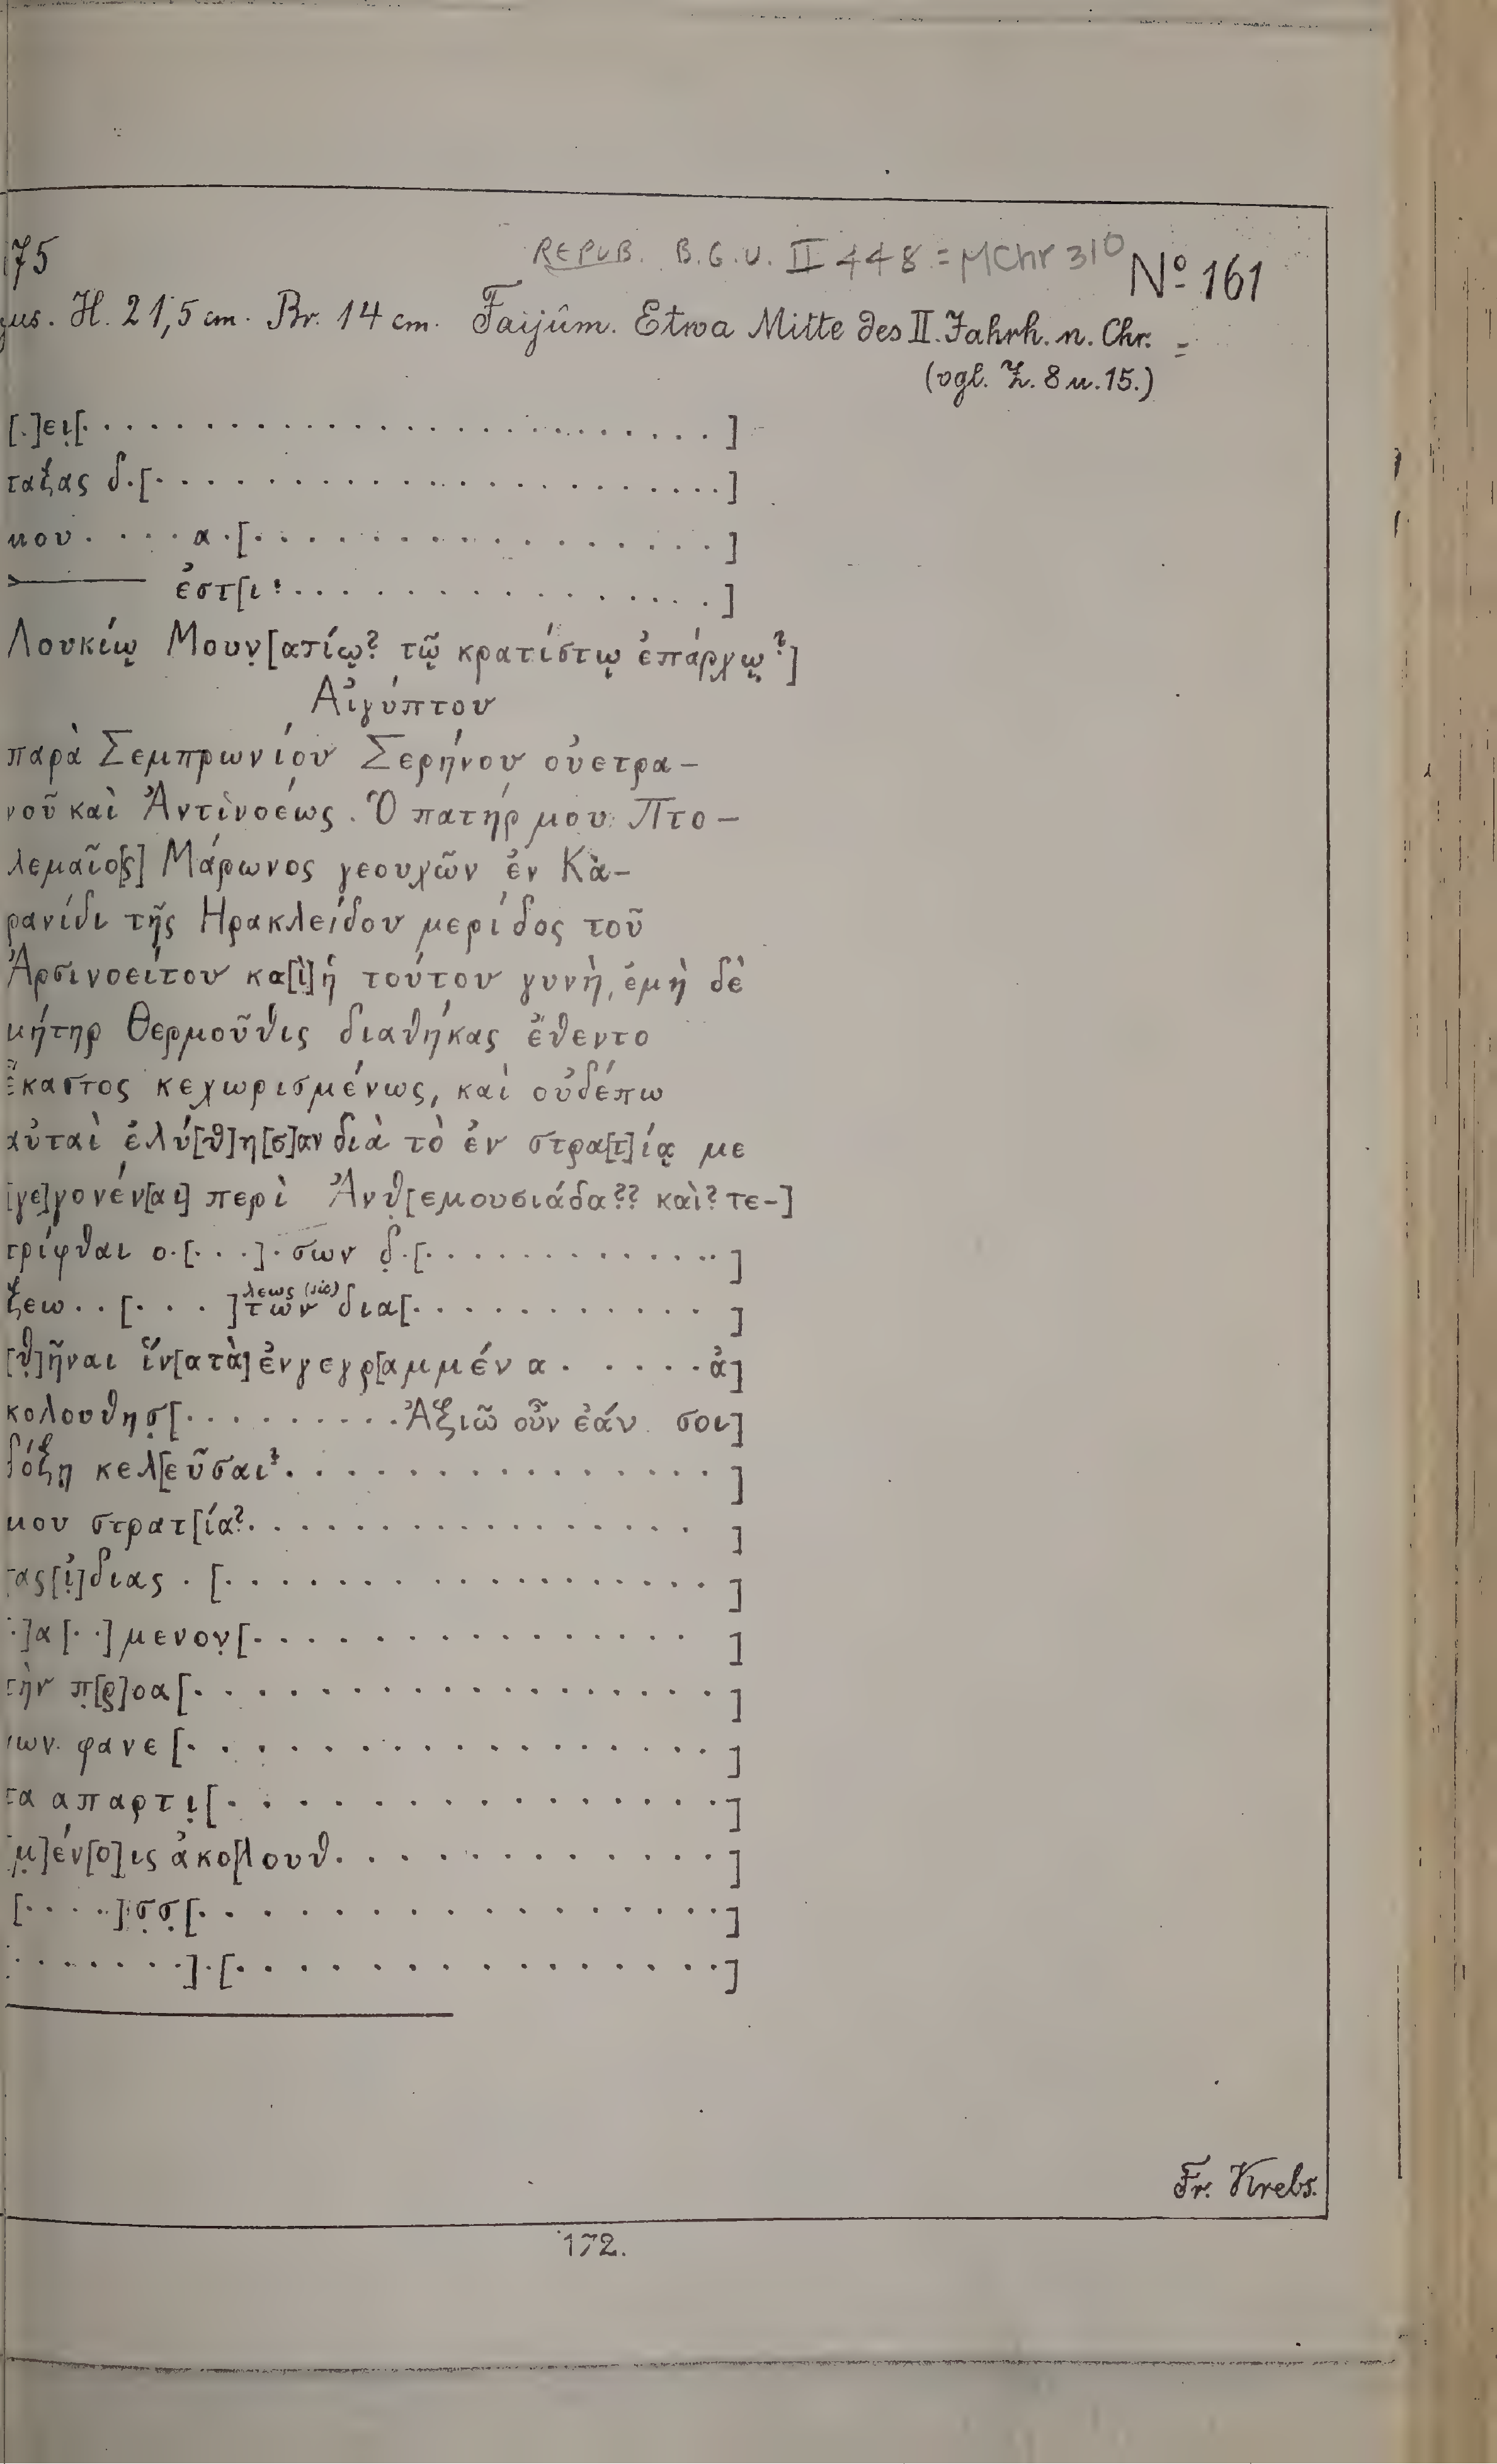 175
REPUB. B.G.U. II 448 = MChr 310
Nº 161
us. H. 21,5 cm. Br. 14 cm. Faijûm. Etwa Mitte des II. Jahrh. n. Chr.
(vgl. Z. 8 u. 15.)
[.]ει̣[. . . . . . . . . . . . . . . . . . . . . . . .]
ταξας δ.[. . . . . . . . . . . . . . . . . . . . . .]
μου . . . . α.[. . . . . . . . . . . . . . . . . .]
>—— ἐστ[ι? . . . . . . . . . . . . . . . . .]
Λουκίῳ Μουν̣[ατίῳ? τῷ κρατίστῳ ἐπάρχῳ?]
Αἰγύπτου
παρὰ Σεμπρωνίου Σερήνου οὐετρα-
νοῦ καὶ Ἀντινοέως. Ὁ πατήρ μου Πτο-
λεμαῖο[ς] Μάρωνος γεουχῶν ἐν Κα-
ρανίδι τῆς Ἡρακλείδου μερίδος τοῦ
Ἀρσινοείτου κα[ὶ] ἡ τούτου γυνὴ, ἐμὴ δὲ
μήτηρ Θερμοῦθις διαθήκας ἔθεντο
ἕκαστος κεχωρισμένως, καὶ οὐδέπω
αὐταὶ ἐλύ[θ]η[σ]αν διὰ τὸ ἐν στρα[τ]ίᾳ με
[γε]γονέν[αι] περὶ Ἀνθ[εμουσιάδα?? καὶ? τε-]
τρίφθαι ο.[. . .].σων δ̣.[. . . . . . . . . . . . .]
ξεω..[. . . .]των δια[. . . . . . . . . . . .]
λεως (sic)
[θ̣]ῆναι ἵν[α τὰ] ἐνγεγρ[αμμένα . . . . . ἀ]
κολουθησ̣[. . . . . . . . . Ἀξιῶ οὖν ἐάν σοι]
δόξῃ κελ[εῦσαι? . . . . . . . . . . . . . . . .]
μου στρατ[ία? . . . . . . . . . . . . . . . . .]
τας [ἰ]διας . [. . . . . . . . . . . . . . . . . .]
.]α[..]μενον̣[. . . . . . . . . . . . . . . . .]
τὴν π̣[ρ̣]οα[. . . . . . . . . . . . . . . . . . .]
των φανε[. . . . . . . . . . . . . . . . . . .]
τα απαρτι̣[. . . . . . . . . . . . . . . . . .]
μ̣]έν[ο]ις ἀκο[λουθ. . . . . . . . . . . . . .]
[. . . . .]σ̣σ̣[. . . . . . . . . . . . . . . . . .]
. . . . . . .].[. . . . . . . . . . . . . . . . .]
Fr. Krebs.
172.